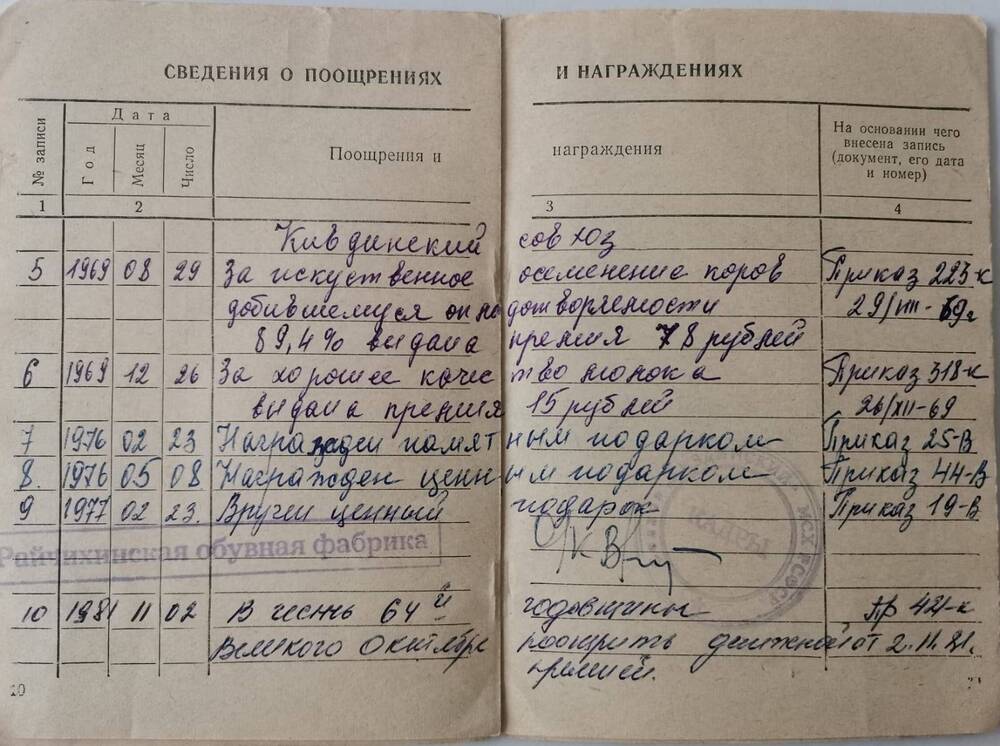 СВЕДЕНИЯ О ПООЩРЕНИЯХ И НАГРАЖДЕНИЯХ
№ записи
Дата
Год
Месяц
Число
Поощрения и награждения
На основании чего
внесена запись
(документ, его дата
и номер)
1 2 3 4
Кивдинский совхоз
5 1969 08 29 За искуственное осеменение коров Приказ 223-к
добившемуся оплодотворяемости 29/VIII-69г
89,4% выдана премия 78 рублей
6 1969 12 26 За хорошее качество молока Приказ 318-к
выдана премия 15 рублей 26/XII-69
7 1976 02 23 Награжден памятным подарком Приказ 25-В
8. 1976 05 08 Награжден ценным подарком Приказ 44-В
9 1977 02 23. Вручен ценный подарок Приказ 19-В
КАДРЫ
МСХ РСФСР
Райчихинская обувная фабрика
10 1981 11 02 В честь 64й годовщины Пр 421-к
Великого Октября поощрить денежной от 2.11.81.
премией.
20